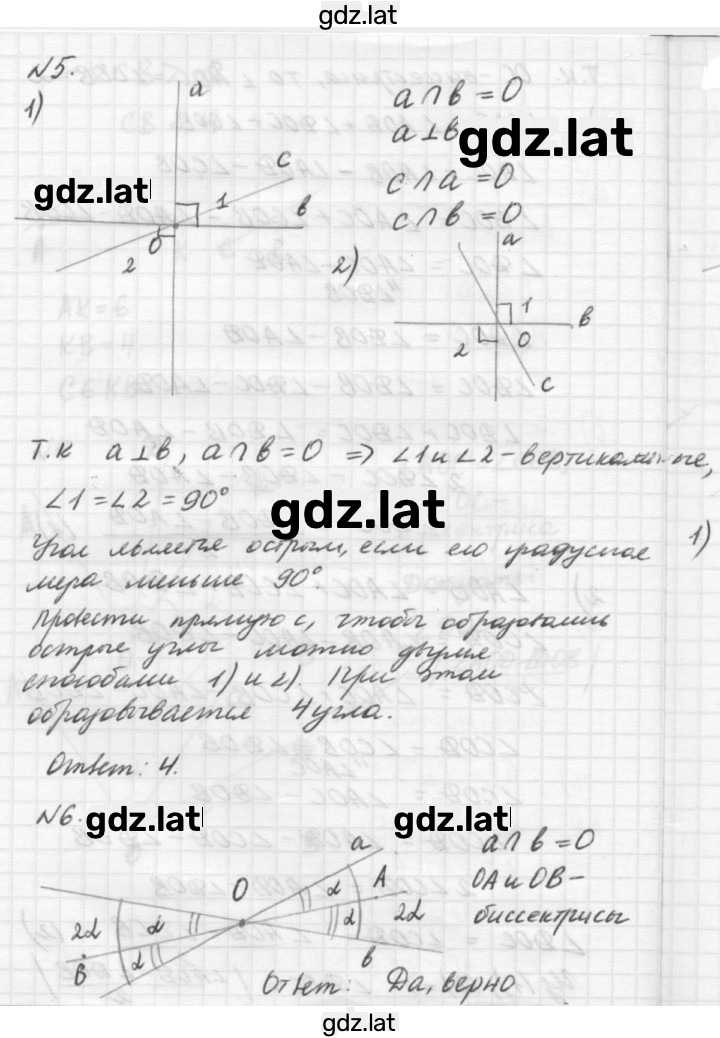 gdz.lat
N5.
1)
a
c
1
в
O
2
a∩в = O
a⊥в
gdz.lat
gdz.lat
c∩a = O
c∩в = O
2)
a
1
в
2
O
c
Т.к a⊥в, a∩в = O ⇒ ∠1 и ∠2 - вертикальные,
∠1 = ∠2 = 90°
gdz.lat
1)
Угол является острым, если его градусная
мера меньше 90°
Провести прямую с, чтобы образовались
острые углы можно двумя
способами 1) и 2). При этом
образовывается 4 угла.
Ответ: 4.
N6.
gdz.lat
gdz.lat
a∩в = O
OA и OB -
биссектрисы
a
O
α
A
2α
α
α
2α
B
α
в
Ответ: Да, верно
gdz.lat